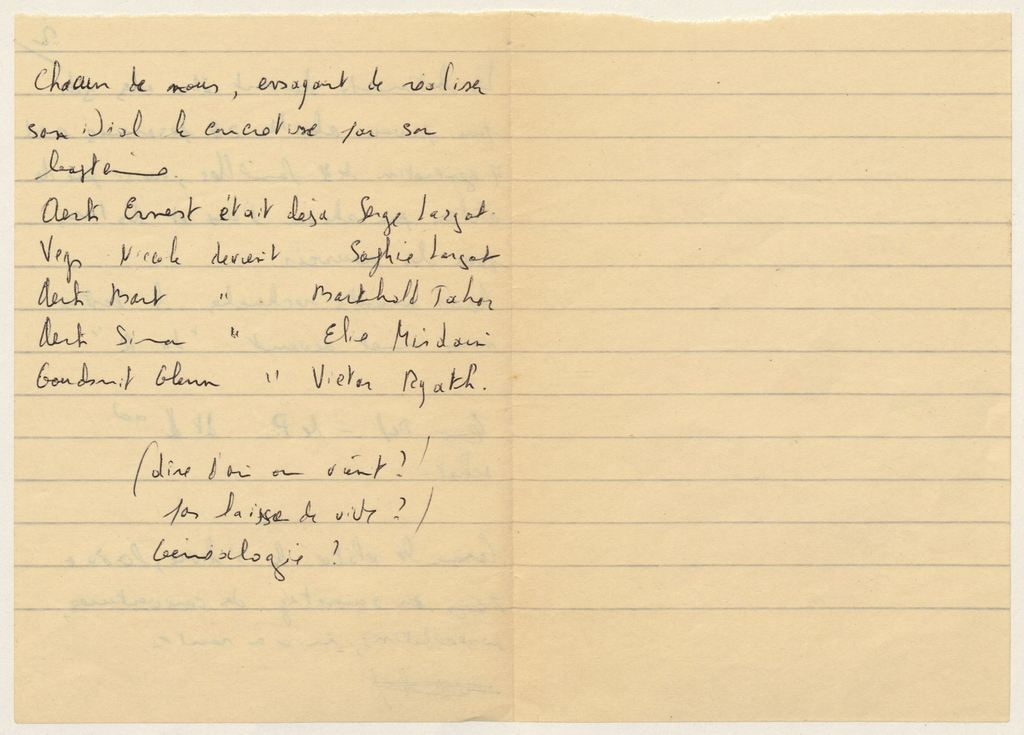 Chacun de nous, essayant de réaliser
son idéal le concrétise par son
baptême.
Aerts Ernest était déjà Serge Largot.
Vep Nicole devient Sophie Largot
Aerts Bart " Barthold Tahor
Aerts Sima " Elie
Goudsmit Glenn " Victor
(dire d'où on vient?
pas laisser de vide?)
Généalogie?